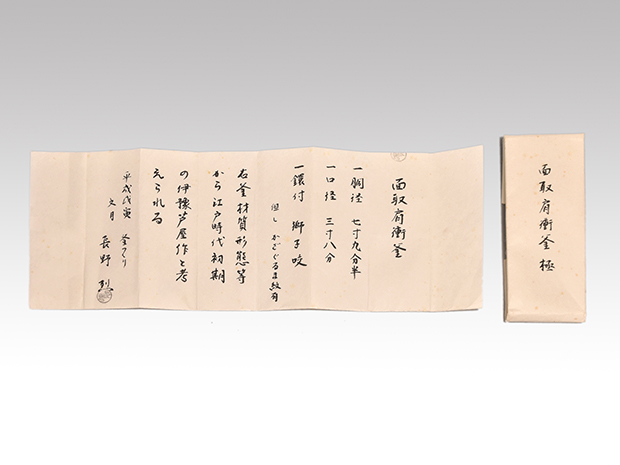 面取肩衝釜
一胴径 七寸九分半
一口径 三寸八分
一鐶付 獅子咬
但し かざぐるま紋有
右釜材質形態等
から江戸時代初期
の伊豫芦屋作と考
えられる
平成戊寅 釜つくり
文月 長野 烈
面取肩衝釜 極